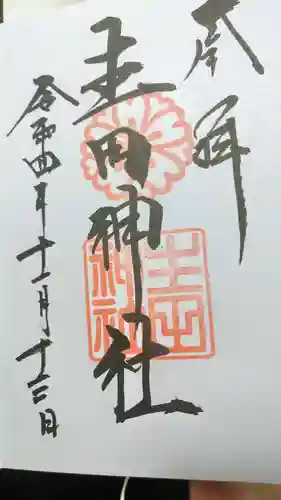 奉拝
生田神社
令和四年十一月十二日
生田
神社